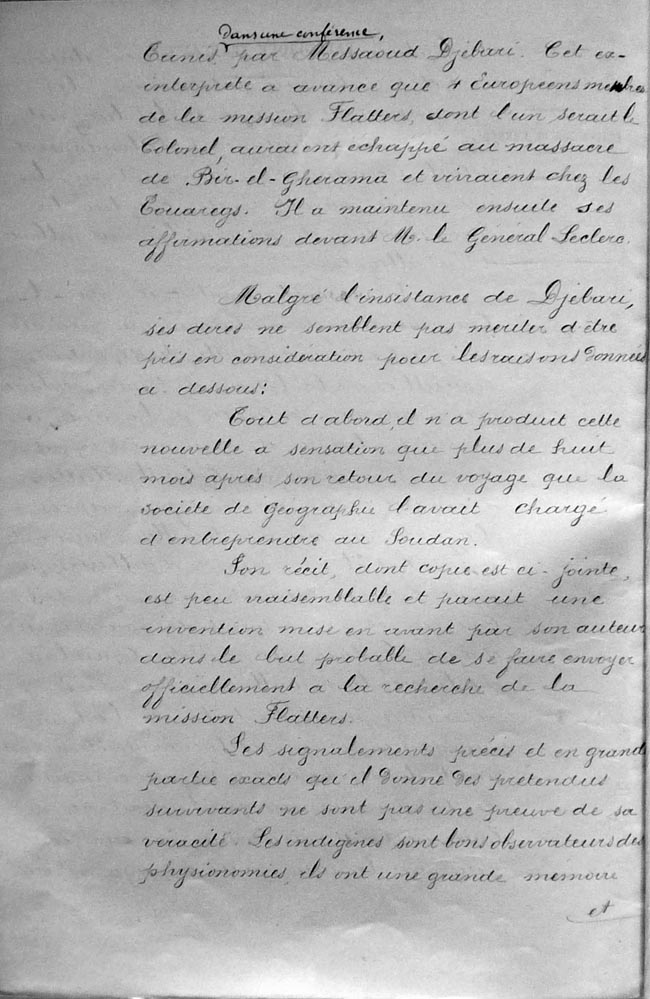 dans une conférence,
Tunis, par Messaoud Djebari. Cet ex-
interprète a avancé que 4 Européens membres
de la mission Flatters, dont l'un serait le
Colonel, auraient echappé au massacre
de Bir-el-Gherama et vivraient chez les
Touaregs. Il a maintenu ensuite ses
affirmations devant M. le Général Leclerc.
Malgré l'insistance de Djebari,
ses dires ne semblent pas meriter d'être
pris en considération pour les raisons données
ci-dessous:
Tout d'abord, il n'a produit cette
nouvelle à sensation que plus de huit
mois après son retour du voyage que la
Société de Géographie l'avait chargé
d'entreprendre au Soudan.
Son récit, dont copie est ci-jointe,
est peu vraisemblable et parait une
invention mise en avant par son auteur
dans le but probable de se faire envoyer
officiellement à la recherche de la
mission Flatters.
Les signalements précis et en grande
partie exacts qu'il donne des prétendus
survivants ne sont pas une preuve de sa
veracité. Les indigènes sont bons observateurs des
physionomies, ils ont une grande memoire
et